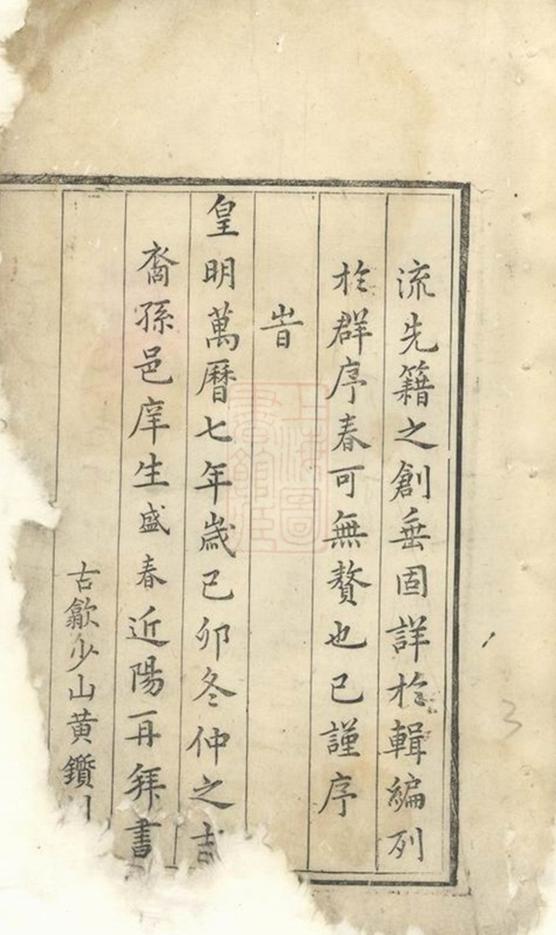 流先籍之創垂固詳於輯編列
於群序春可無贅也已謹序
旹
皇明萬曆七年歲己卯冬仲之吉
裔孫邑庠生盛春近陽再拜書
古歙少山黃鑽
上海圖書館藏
3